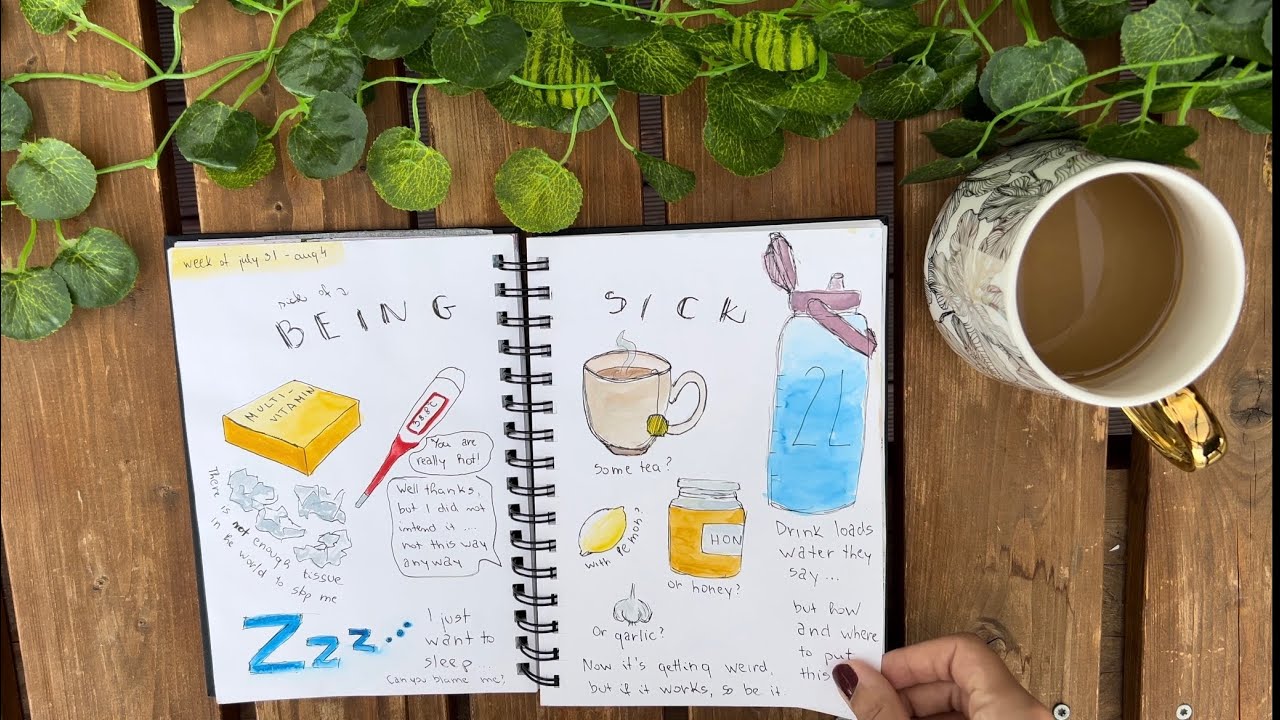 week of july 31 - aug 4
pick of
BEING
MULTI-
VITAMIN
38.8C
You are
really hot!
Well thanks,
but I did not
intend it..
not this way
anyway
There is not enough tissue
in the world to stop me
Zzz...
I just
want to
sleep...
Can you blame me?
SICK
some tea?
with lemon?
HON
or honey?
Or garlic?
Now it's getting weird,
but if it works, so be it.
2L
Drink loads
water they
say...
but how
and where
to put
this